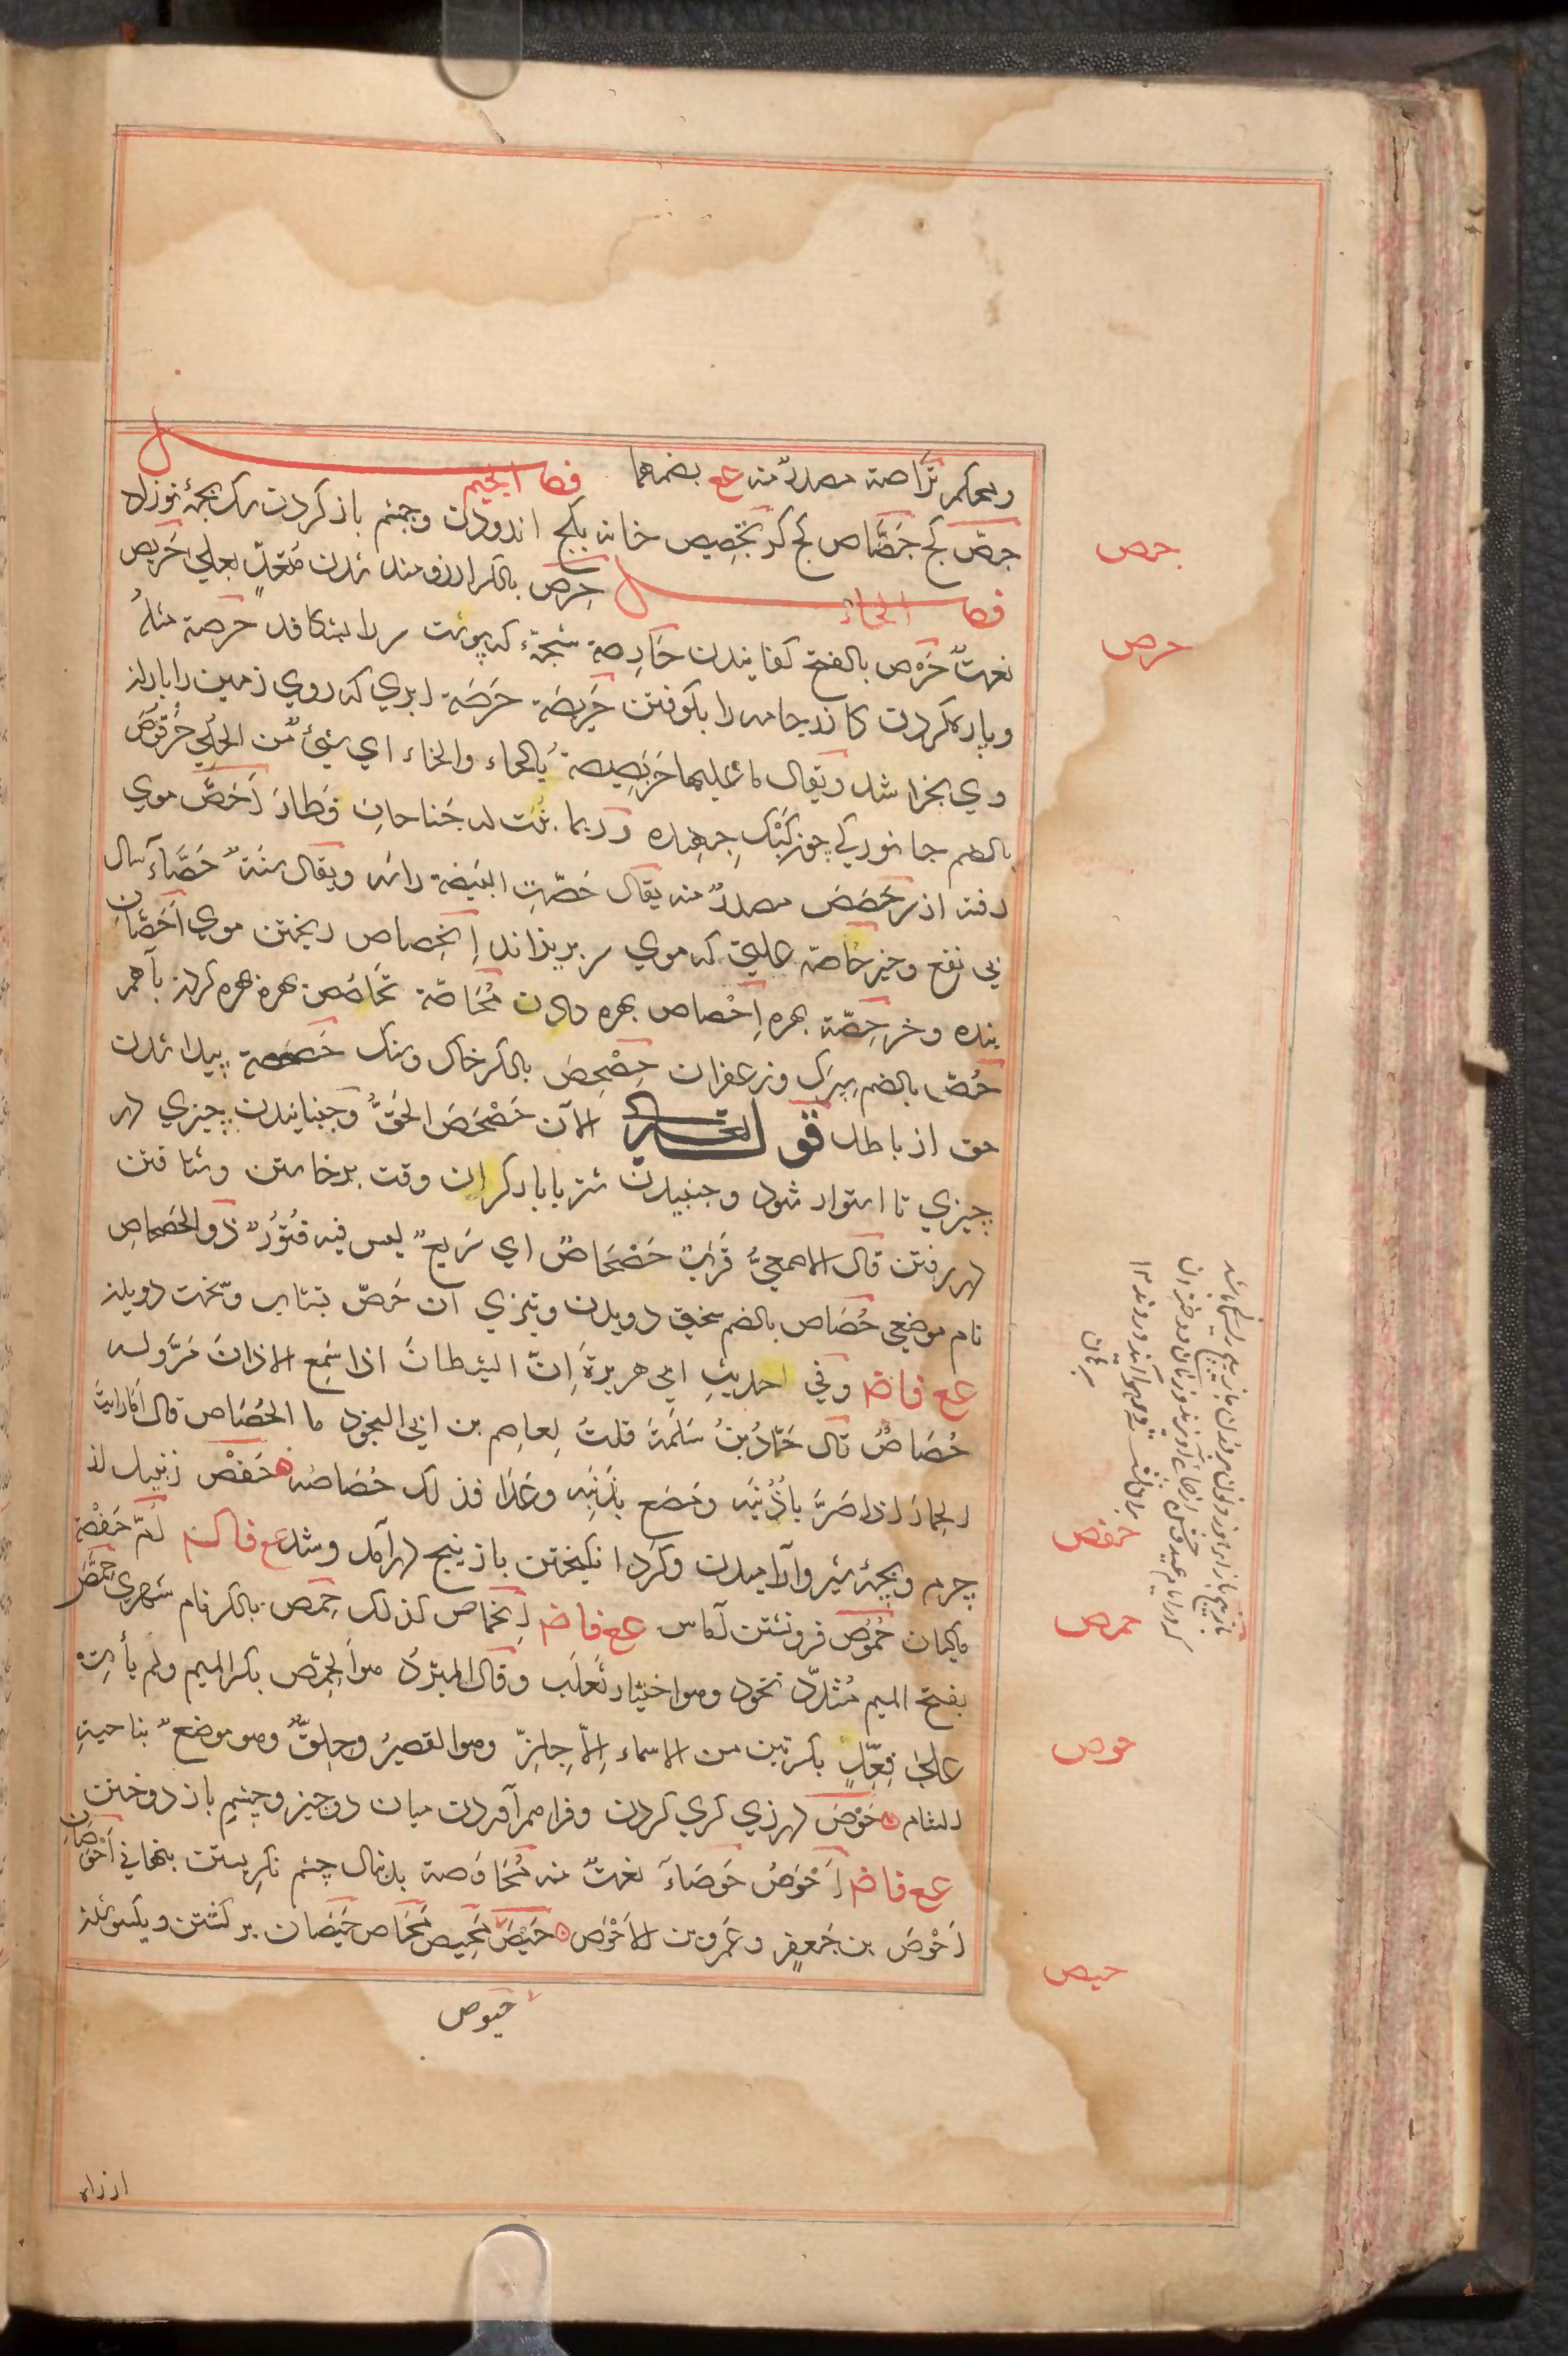 ومحكم تراصة مصدر منه عع بضمهما فصل الجيم
جصّ كج جَصَّاص كج كر تجصيص خانه بكج اندودن وچشم باز كردن سك بچهٔ نوزاده
فصل الحاء حِرص بالكسر ارزومند شدن مُتعدٍّ بعلى حَريص
نعتٌ حَرْص بالفتح كفانيدن حَارِصة شجّة كه پوست سر را بشكافد حرصة مثلهُ
وپاره كردن كازر جامه را بكوفتن حَرِيصَة حَرصَة ابرى كه روي زمين را بباران
وى بخراشد ويقال ما عليها خربصيصة بالحاء والخاء اي شيءٌ من الحلي حُرقوص
بالضم جانوري چون كَيك جهنده وربما نبت له جَناحان فطار اَحَصّ موى
رفته از سر حَصَص مصدرٌ منه يقال حَصّتِ البَيضة راسه ويقال سَنَةٌ حَصَّاء سال
بى نفع وخير حاصّة علتى كه موى سر بريزاند اِنْحِصاص ريختن موي اَحَصَّان
بنده وخر حِصّة بهره اِحْصاص بهره دادن مُحَاصّة تحاصص بهره بهره كردن باهم
حُصّ بالضم سپرك وزعفران حِصْحِص بالكسر خاك وسنك حَصحصة پيدا شدن
حق از باطل قوله تعالى الآن حَصْحَصَ الحَقُّ وجنبانيدن چيزي در
چيزي تا استوار شود وجنبيدن شتر با بار كران وقت برخاستن وشتافتن
در رفتن قال الاصمعيُّ قَرَبٌ حَصْحَاصٌ اي سَريعٌ ليس فيه فُتُورٌ ذو الحَصحاصِ
نام موضعى حُصَاص بالضم سخت دويدن وتيزي آن حَصّ بشتاب وسخت دويدن
عع فاضم وفي حديث ابي هريرةَ اِنّ الشيطانَ اذا سَمِع الاذانَ مَرَّ وله
حُصَاصٌ قال حَمّادُ بنُ سَلَمَة قلتُ لِعاصم بن ابي النجود ما الحُصَاص قال أما رايتَ
الحِمَارَ اذا صَرَّ باُذُنيه ومَصَع بِذَنَبِه وعَدَا فذلك حُصَاصُه حَفْص زنبيل از
چرم وبچهٔ شير وآراميدن وكرد انكيختن بازيچ درآمد وشد عع فاكسم اُمّ حَفْصة
ماكيان حُمُوص فرونشستن آماس عع فاضم اِنحماص كذلك حِمص بالكسر نام شهري حِمّص
بفتح الميم مُشدّد نخود وهو اختيار ثَعلَب وقال المبرّدُ هو الحِمِّص بكسر الميم ولم يأتِ
على فِعِّلٍ بكسرتين من الاسماء اِلّا حِلِزّ وهو القصيرُ وجِلِقٌّ وهو موضعٌ بناحيةِ
الشام حَوْص درزي كري كردن وفراهم آمدن ميان دو چيز وچشم باز دوختن
عع فاضم اَحْوَص حَوصَاء نعتٌ منه مُحَاوَصة بدنبال چشم نكريستن بنهانى اَحْوَصَانِ
اَحْوَص بن جَعفر وعَمرو بن الاَحْوَص حَيْص مَحِيص مَحَاص حَيَصان بركشتن ويكسو شدن
حيوص
ازراه
جص
حرص
حفص
حمص
حوص
حيص